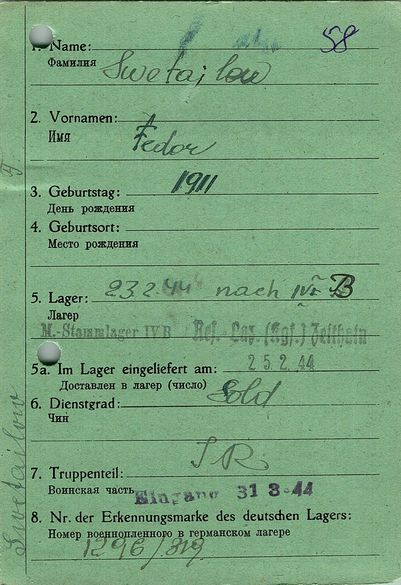 58
1. Name:
Фамилия
Swetajlow
2. Vornamen:
Имя
Fedor
3. Geburtstag: 1911
День рождения
4. Geburtsort:
Место рождения
5. Lager: 23.2.44 nach IV B
Лагер
M.-Stammlager IV B Res.-Laz. (Kgf.) Zeithain
5a. Im Lager eingeliefert am: 25.2.44
Доставлен в лагер (число)
6. Dienstgrad: Sold
Чин
J.R.
7. Truppenteil:
Воинская часть Eingang 31 3-44
8. Nr. der Erkennungsmarke des deutschen Lagers:
Номер военнопленного в германском лагере
1296/319
Swetajlow